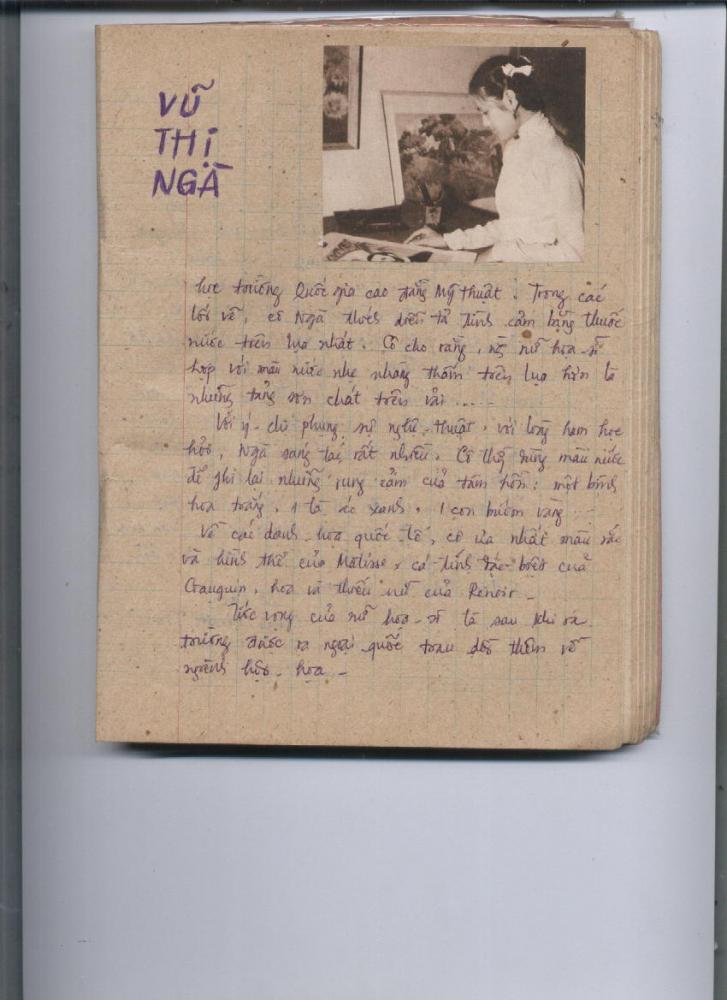 VŨ
THỊ
NGÀ
học trường Quốc gia cao đẳng Mỹ thuật. Trong các
lối vẽ, cô Ngà thích diễn tả tình cảm bằng thuốc
nước trên lụa nhất. Cô cho rằng, nữ họa-sĩ
hợp với màu nước nhẹ nhàng thấm trên lụa hơn là
những tảng sơn chát trên vải ....
Với ý-chí phụng sự nghệ-thuật, với lòng ham học
hỏi, Ngà sáng tác rất nhiều. Cô thg dùng màu nước
để ghi lại những rung cảm của tâm hồn: một bình
hoa trắng, 1 lá xanh, 1 con bướm vàng ...
Về các danh-họa quốc tế, cô ưa nhất màu sắc
và hình thể của Matisse, cá tính đặc-biệt của
Gauguin, hoa và thiếu nữ của Renoir -
Ước vọng của nữ họa-sĩ là sau khi ra
trường được ra ngoại quốc trau dồi thêm về
ngành hội-họa -